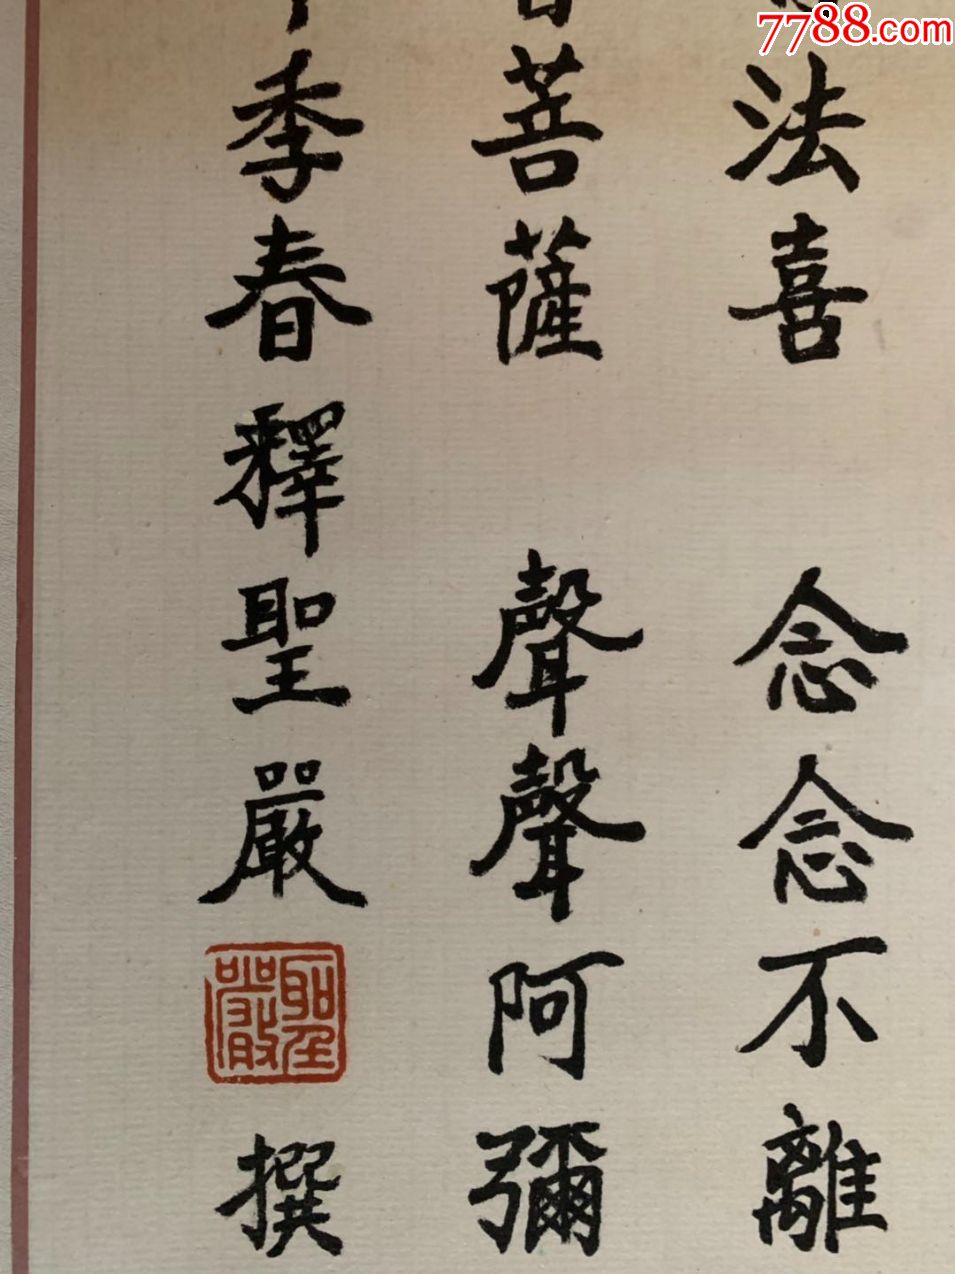 7788.com
法喜 念念不離
菩薩 聲聲阿彌
季春釋聖嚴撰
聖嚴